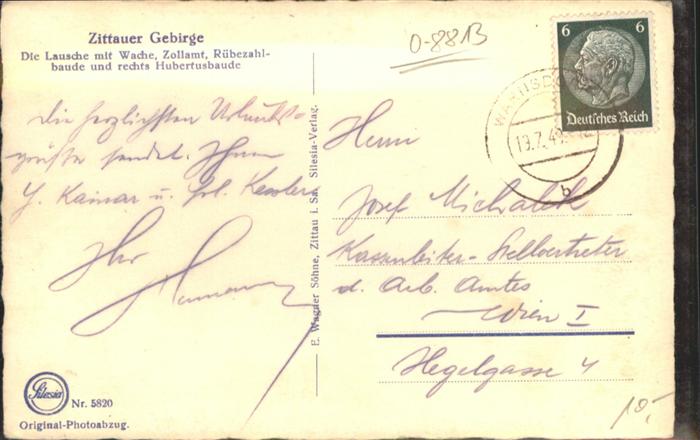 Zittauer Gebirge
Die Lausche mit Wache, Zollamt, Rübezahl-
baude und rechts Hubertusbaude
Die herzlichsten Urlaubs-
grüße sendet Ihnen
u. Frl. Kessler
Ihr
Silesia
Nr. 5820
Original-Photoabzug.
E. Wagner Söhne, Zittau i. Sa. Silesia-Verlag.
0-88B
6 6
Deutsches Reich
WARNSD
19.7.4
b
Herrn
Josef
Kassenleiter-Stellvertreter
d. Arb. Amtes
Wien I
Hegelgasse 4
10,-